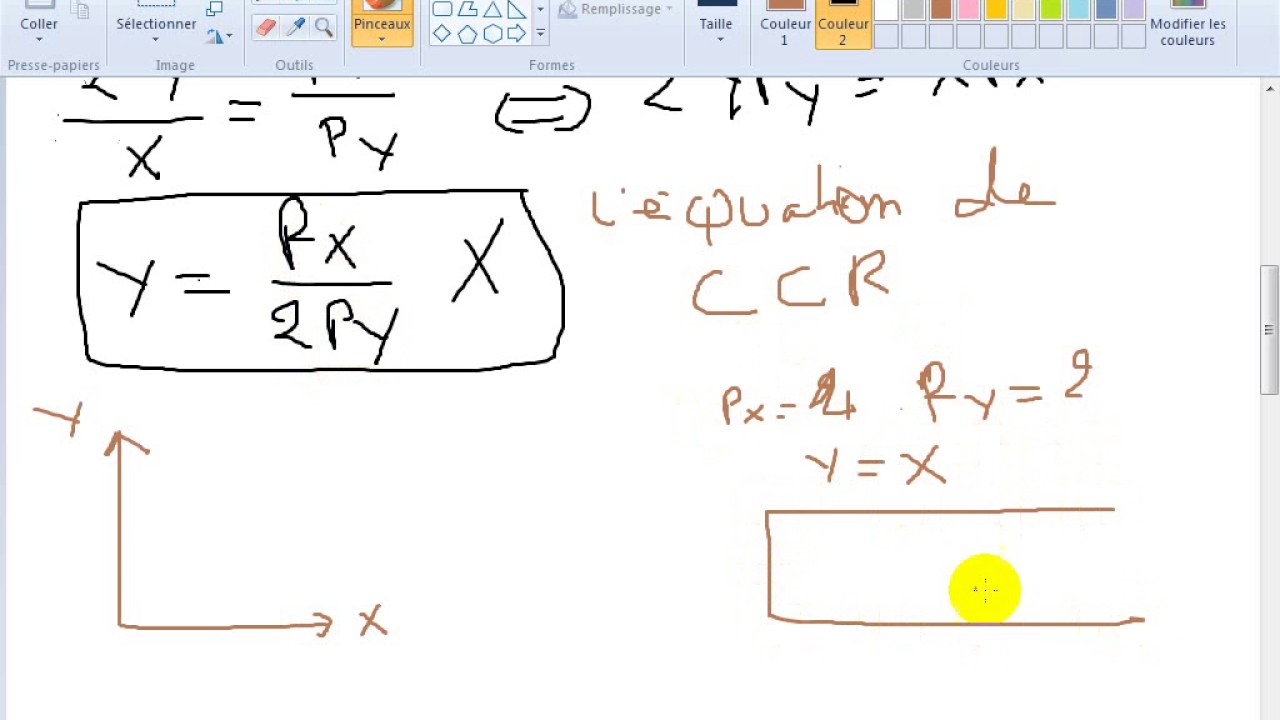 Coller Sélectionner Pinceaux Remplissage Taille Couleur 1 Couleur 2 Modifier les couleurs
Presse-papiers Image Outils Formes Couleurs
2Y/X = Px/PY ⇔ 2PY = XPx
Y = Px/2PY X
l'équation de
CCR
Px = 4 PY = 2
Y = X
Y
X